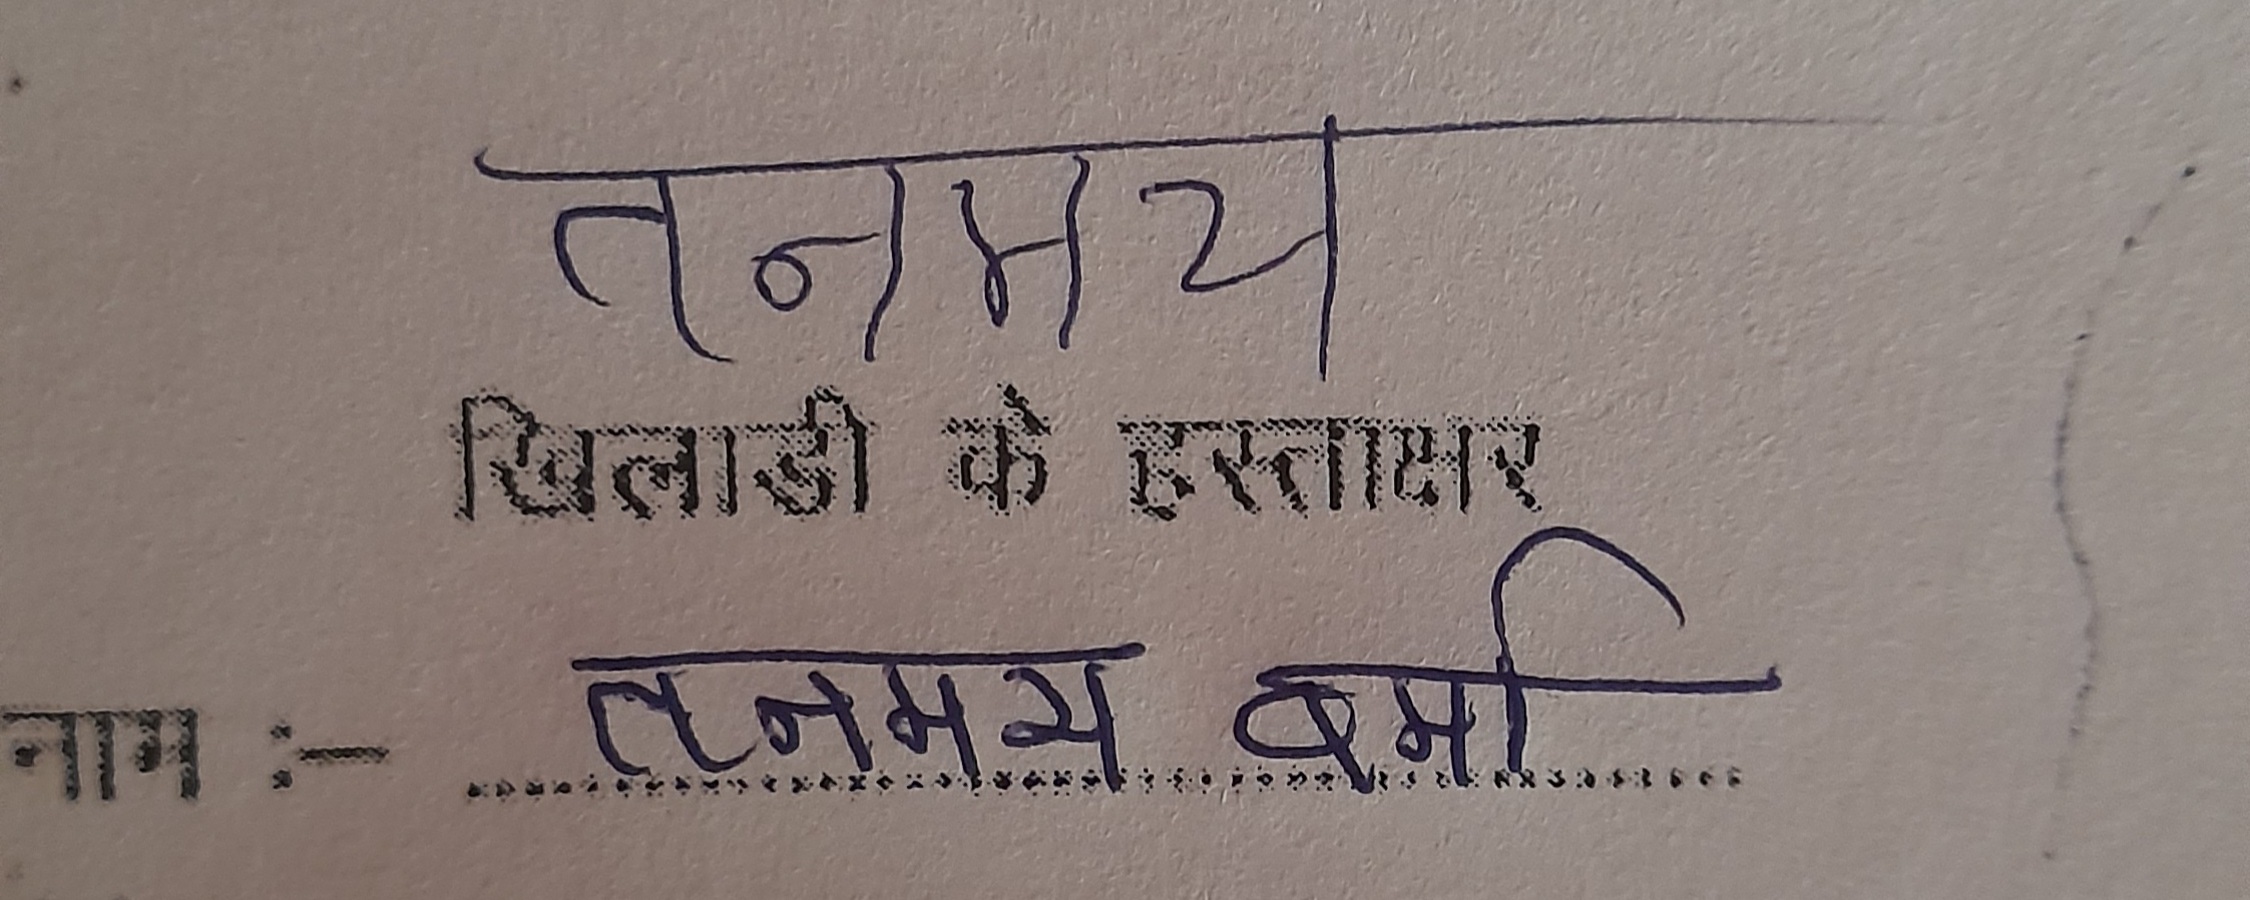 तनमय
खिलाडी के हस्ताक्षर
नाम :- तनमय वर्मा